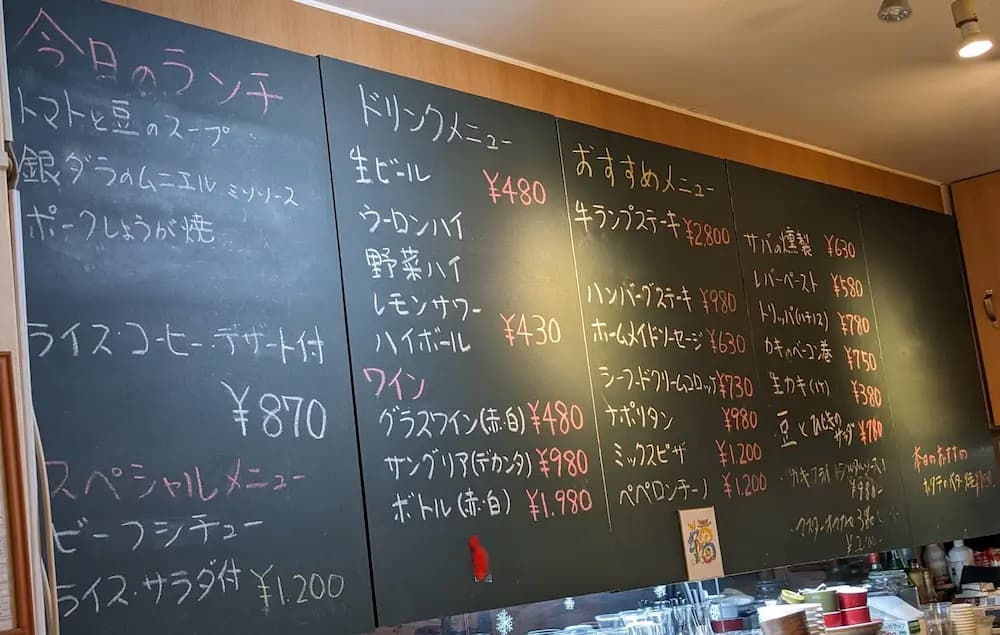 今日のランチ
トマトと豆のスープ
銀ダラのムニエル ミソソース
ポークしょうが焼
ライス・コーヒー・デザート付
¥870
スペシャルメニュー
ビーフシチュー
ライス・サラダ付 ¥1.200
ドリンクメニュー
生ビール ¥480
ウーロンハイ
野菜ハイ
レモンサワー
ハイボール ¥430
ワイン
グラスワイン(赤・白) ¥480
サングリア(デカンタ) ¥980
ボトル(赤・白) ¥1.980
おすすめメニュー
牛ランプステーキ ¥2.800
ハンバーグステーキ ¥980
ホームメイドソーセージ ¥630
シーフードクリームコロッケ ¥730
ナポリタン ¥980
ミックスピザ ¥1.200
ペペロンチーノ ¥1.200
サバの燻製 ¥630
レバーペースト ¥580
トリッパ(ハチノス) ¥780
カキのベーコン巻 ¥750
生カキ(1ケ) ¥380
豆とひじきのサラダ ¥780
カキフライ
¥980-
本日のおすすめ
ホタテのバター焼